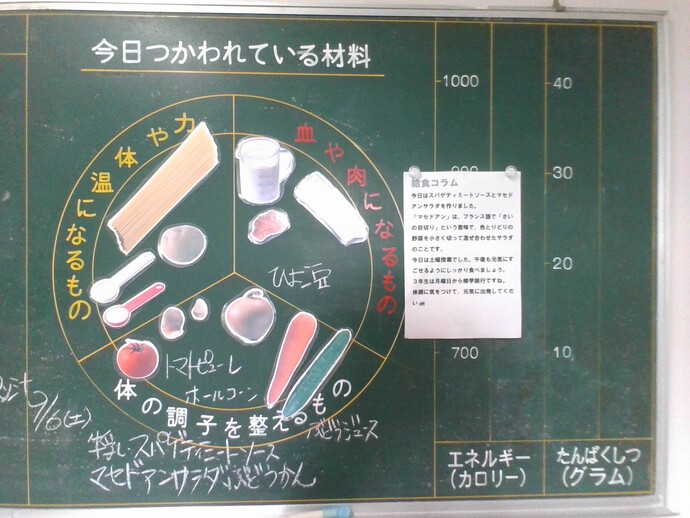 今日つかわれている材料
力や体温になるもの
血や肉になるもの
体の調子を整えるもの
ひよこ豆
トマトピューレ
ホールコーン
9/6(土)
スパゲティミートソース
マセドアンサラダ ぶどうかん
1000
900
700
40
30
20
10
エネルギー
(カロリー)
たんぱくしつ
(グラム)
給食コラム
今日はスパゲティミートソースとマセド
アンサラダを作りました。
「マセドアン」は、フランス語で「さい
の目切り」という意味で、色とりどりの
野菜を小さく切って混ぜ合わせたサラダ
のことです。
今日は土曜授業でした。午後も元気にす
ごせるようにしっかり食べましょう。
3年生は月曜日から修学旅行ですね。
体調に気をつけて、元気に出発してくだ
い